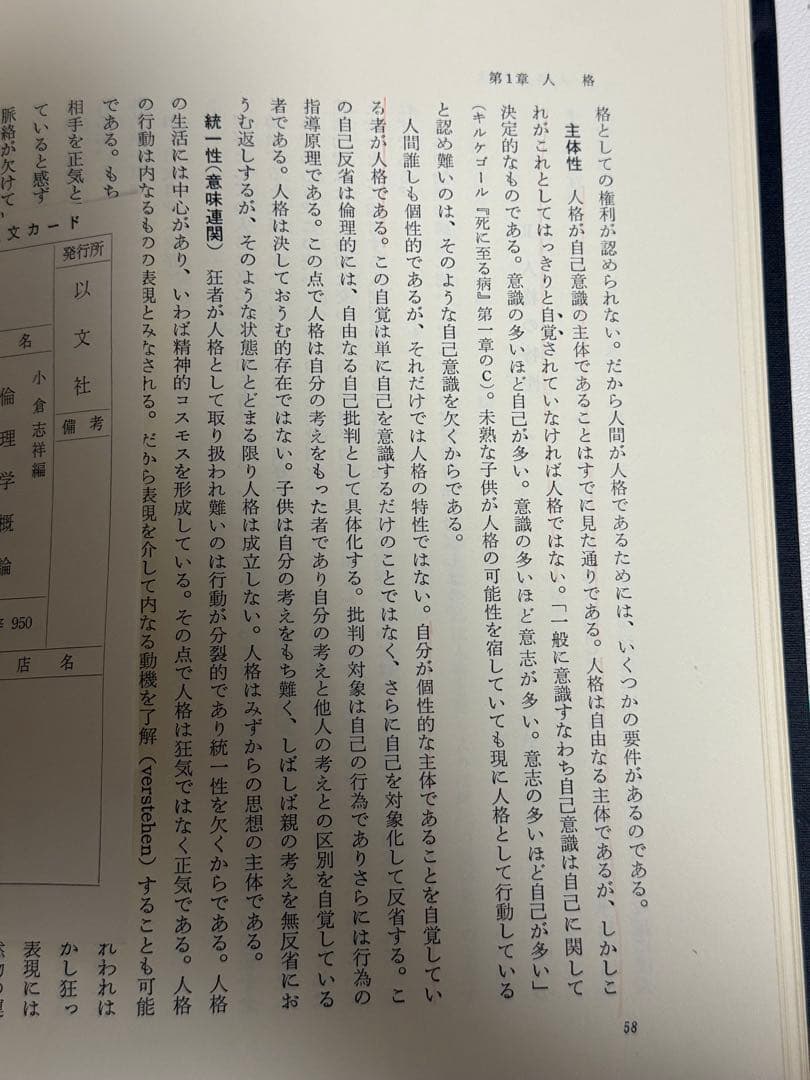 第1章 人 格
格としての権利が認められない。だから人間が人格であるためには、いくつかの要件があるのである。
主体性 人格が自己意識の主体であることはすでに見た通りである。人格は自由なる主体であるが、しかしこ
れがこれとしてはっきりと自覚されていなければ人格ではない。「一般に意識すなわち自己意識は自己に関して
決定的なものである。意識の多いほど自己が多い。意識の多いほど意志が多い。意志の多いほど自己が多い」
(キルケゴール『死に至る病』第一章のC)。未熟な子供が人格の可能性を宿していても現に人格として行動している
と認め難いのは、そのような自己意識を欠くからである。
人間誰しも個性的であるが、それだけでは人格の特性ではない。自分が個性的な主体であることを自覚してい
る者が人格である。この自覚は単に自己を意識するだけのことではなく、さらに自己を対象化して反省する。こ
の自己反省は倫理的には、自由なる自己批判として具体化する。批判の対象は自己の行為でありさらには行為の
指導原理である。この点で人格は自分の考えをもった者であり自分の考えと他人の考えとの区別を自覚している
者である。人格は決しておうむ的存在ではない。子供は自分の考えをもち難く、しばしば親の考えを無反省にお
うむ返しするが、そのような状態にとどまる限り人格は成立しない。人格はみずからの思想の主体である。
統一性(意味連関) 狂者が人格として取り扱われ難いのは行動が分裂的であり統一性を欠くからである。人格
の生活には中心があり、いわば精神的コスモスを形成している。その点で人格は狂気ではなく正気である。人格
の行動は内なるものの表現とみなされる。だから表現を介して内なる動機を了解(verstehen)することも可能
である。もち
れわれは
相手を正気と
かし狂っ
ていると感す
表現には
脈絡が欠けて
58
文カード
発行所
以文社
備考
名
小倉志祥編
倫理学概論
950
店名